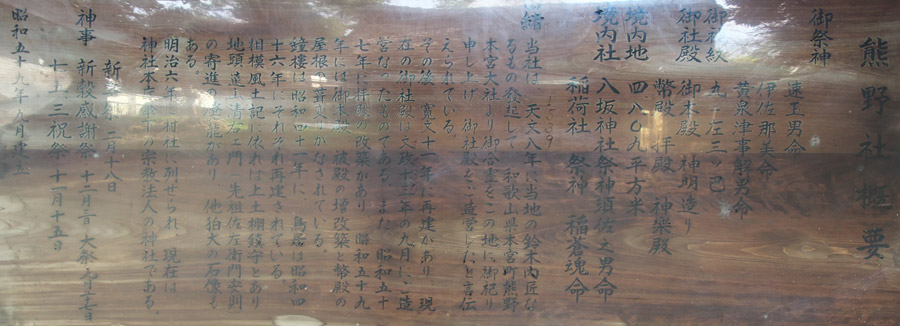 熊野社概要
御祭神
速玉男命
伊佐那美命
黄泉津事解男命
御社紋 丸に左三ツ巴
御社殿 御本殿 神明造り
幣殿 拝殿 神楽殿
境内地 四八〇九平方米
境内社 八坂神社 祭神 須佐之男命
稲荷社 祭神 稲倉魂命
緒 当社は、天文八年に当地の鈴木内匠な
るもの発起して、和歌山県本宮町熊野
本宮大社より御合霊をこの地に御祀り
申し上げ、御社殿をご造営したと言伝
えられている。
その後、寛文十一年に再建があり、現
在の御社殿は文政十三年の九月にご造
営なったものである。また、昭和五十
七年に拝殿の改築があり、昭和五十九
年には御本殿、祓殿の増改築と幣殿の
屋根の葺替がなされている。
鐘楼は昭和四十一年に、鳥居は昭和四
十六年にそれぞれ再建されている。
相模風土記に依れば上土棚鎮守とあり
地頭進士清左エ門、先祖佐左衛門安則
の寄進の燈籠があり、他狛犬の石像も
ある。
明治六年村社に列せられ、現在は
神社本庁包括の宗教法人の神社である。
二月十八日
神事 新穀感謝祭 十二月二日 大祭 九月二十七日
七五三祝祭 十一月十五日
昭和五十九年九月建立